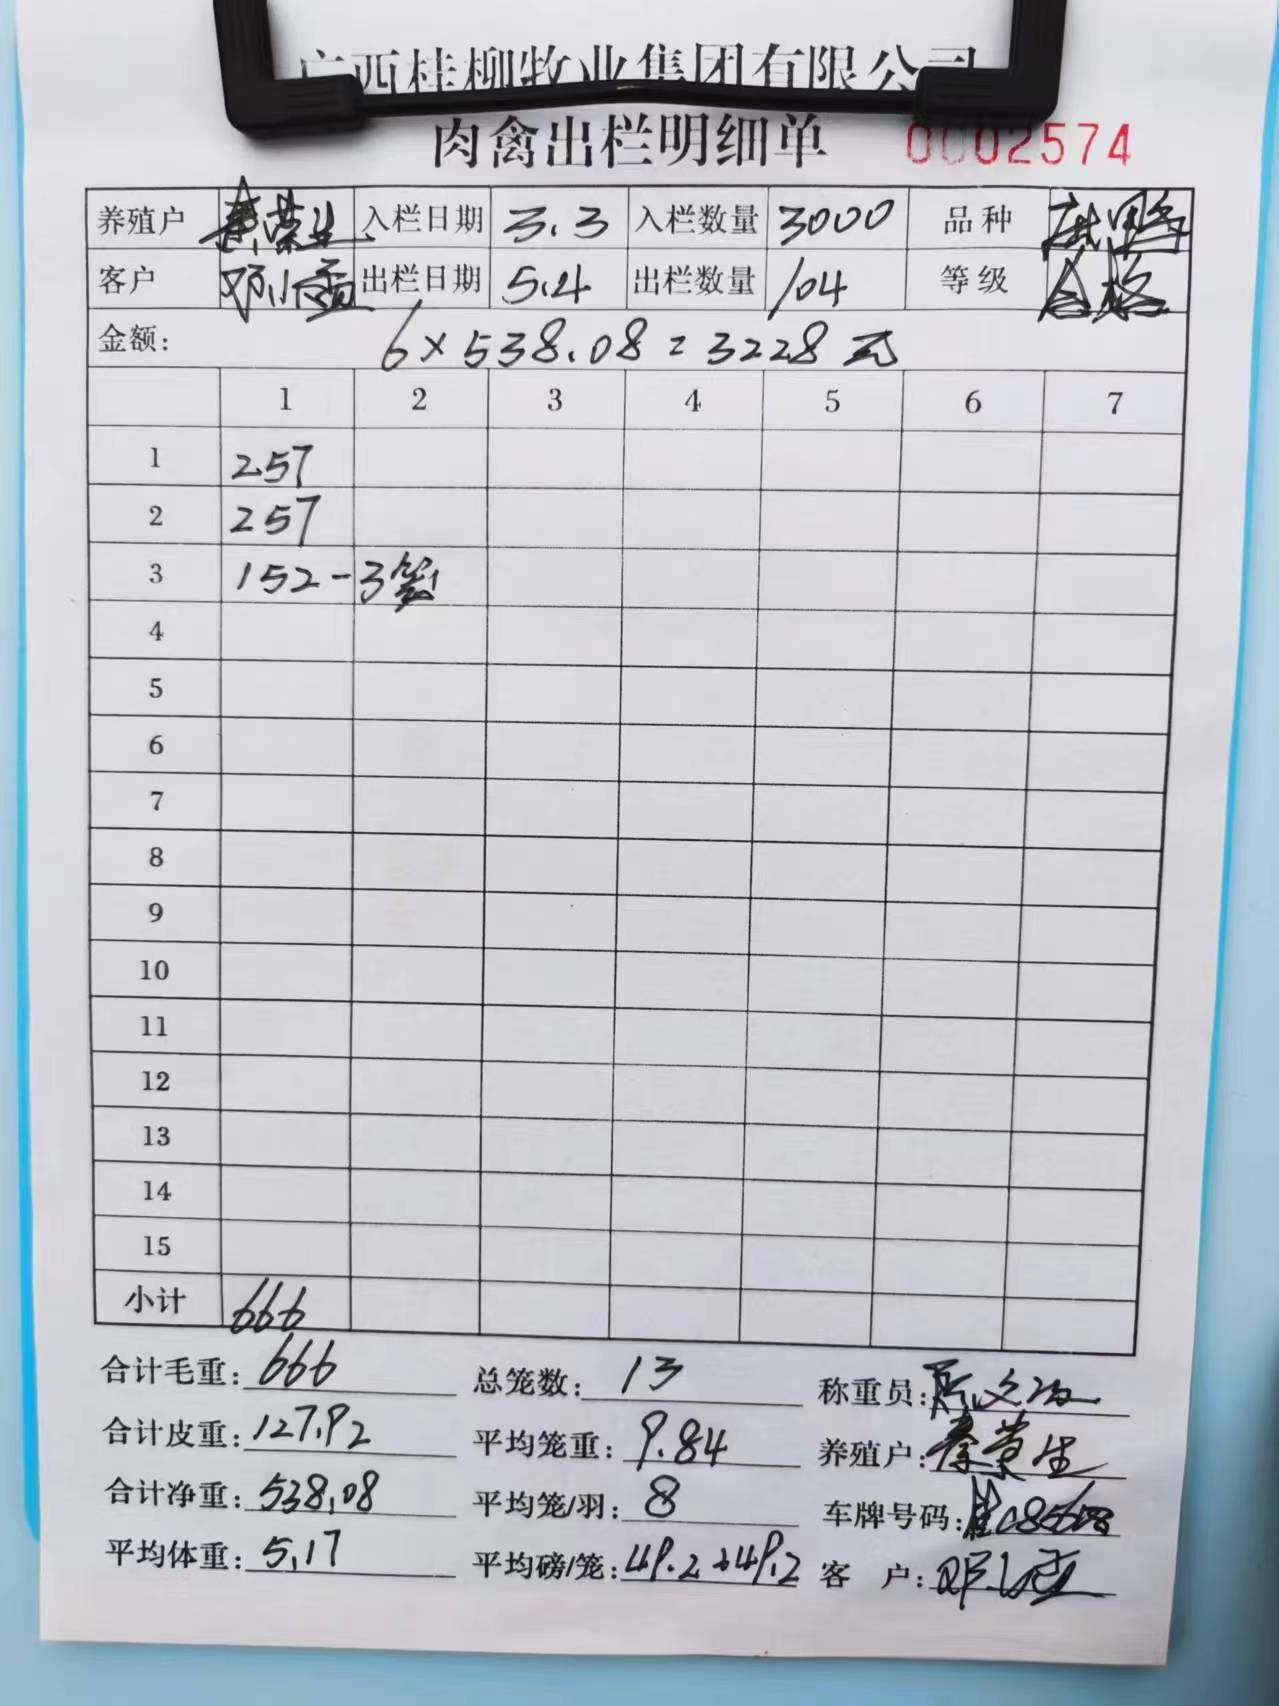 广西桂柳牧业集团有限公司
肉禽出栏明细单 0002574
养殖户 秦荣生 入栏日期 3.3 入栏数量 3000 品种
客户 邓小孟 出栏日期 5.4 出栏数量 104 等级 合格
金额: 6×538.08=3228元
1 2 3 4 5 6 7
1 257
2 257
3 152-3笼
4
5
6
7
8
9
10
11
12
13
14
15
小计 666
合计毛重: 666 总笼数: 13 称重员:
合计皮重: 127.92 平均笼重: 9.84 养殖户: 秦荣生
合计净重: 538.08 平均笼/羽: 8 车牌号码:
平均体重: 5.17 平均磅/笼: 49.2+49.2 客 户: